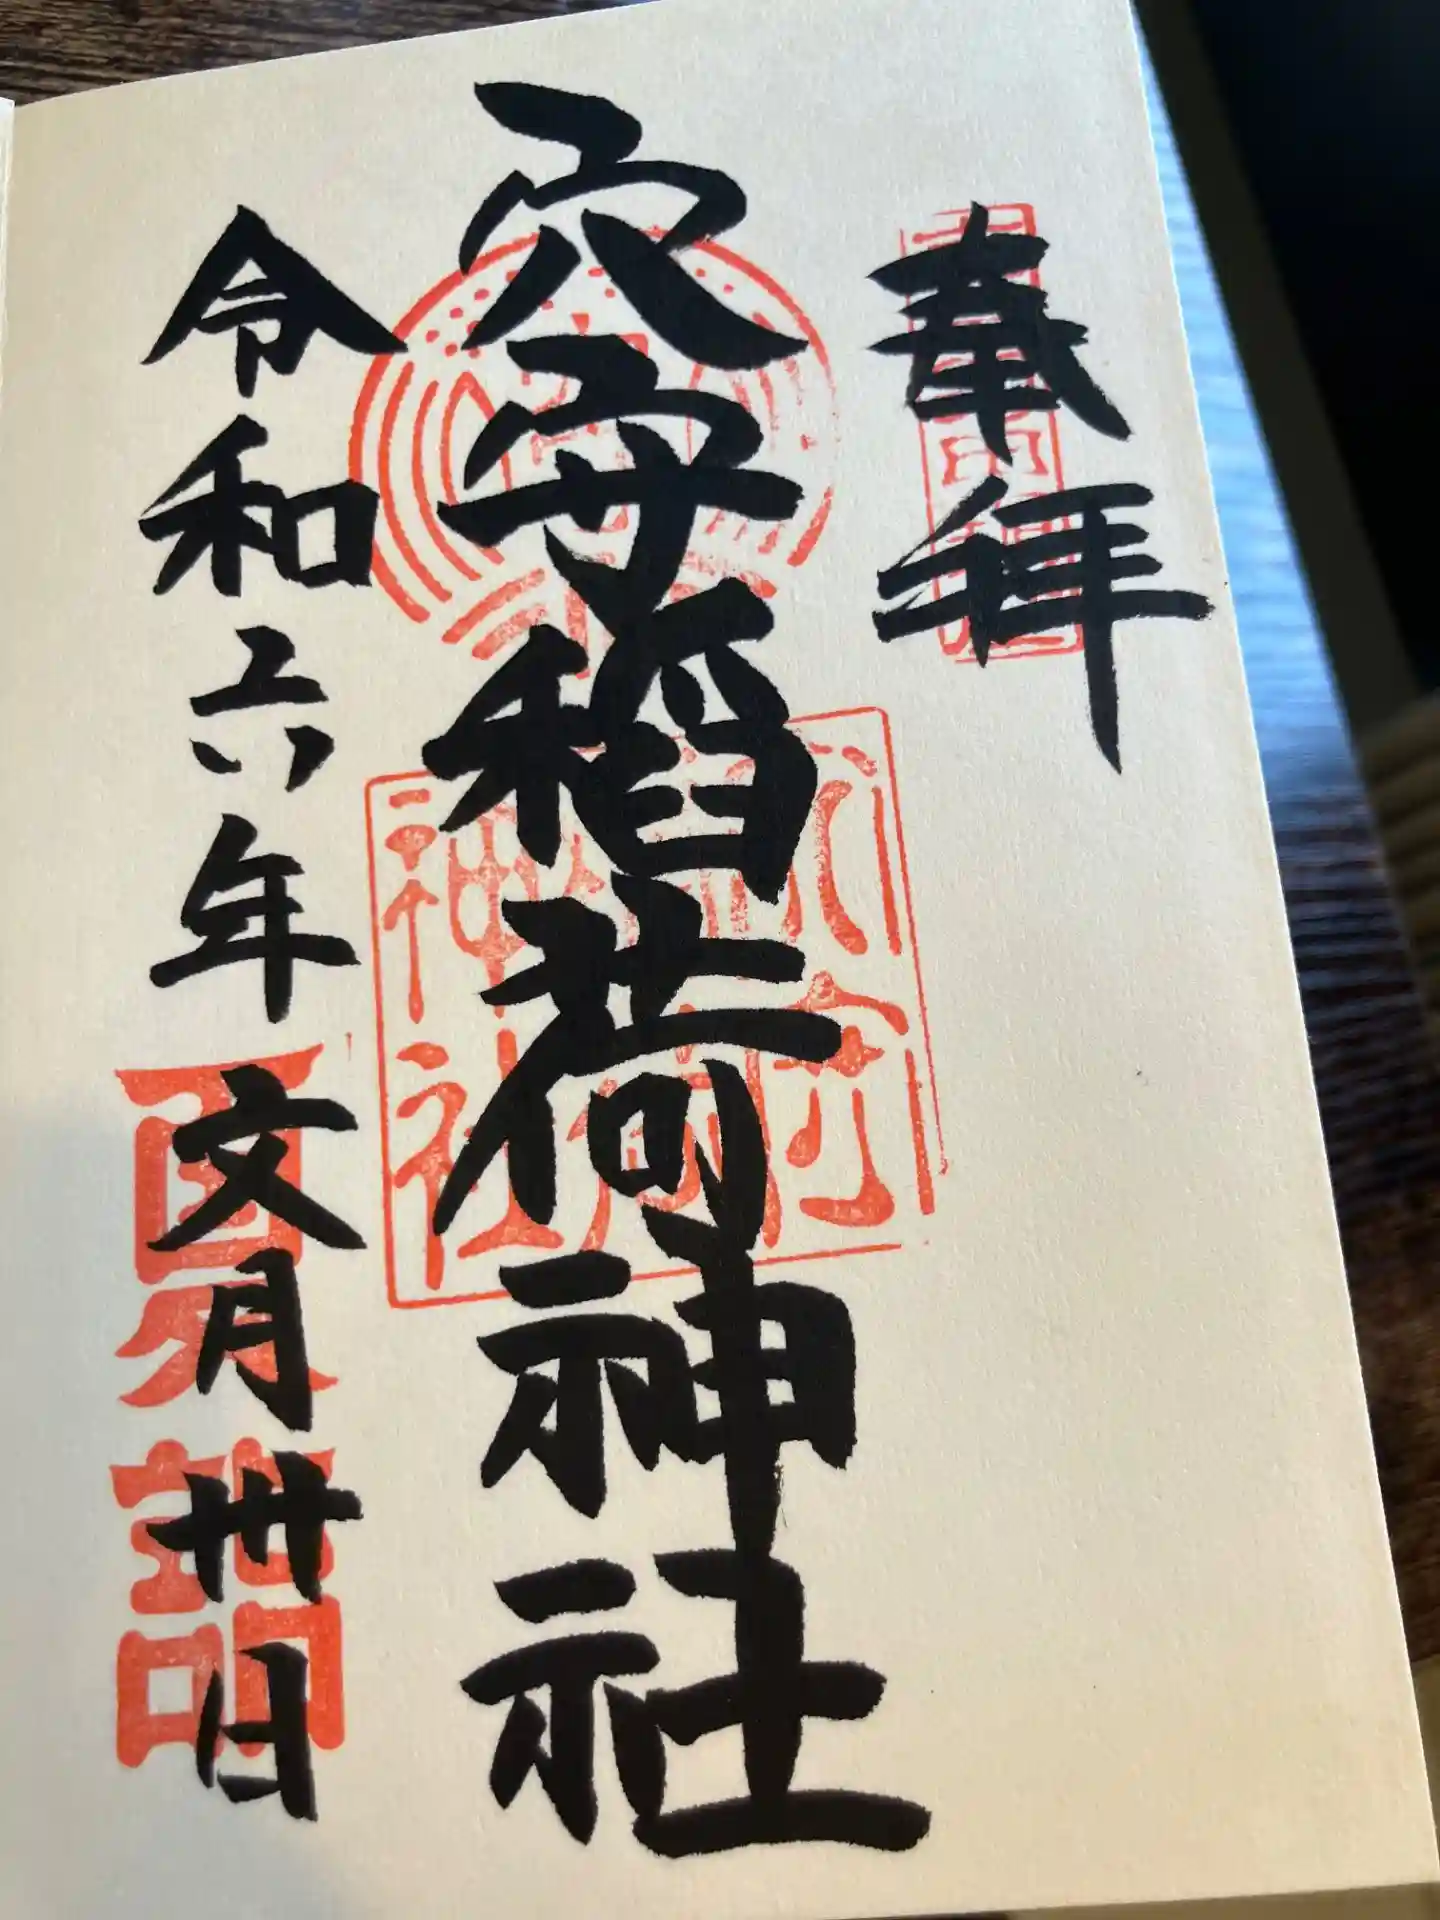 奉拝
穴守稲荷神社
令和六年文月卅日
穴守稲荷神社
夏詣